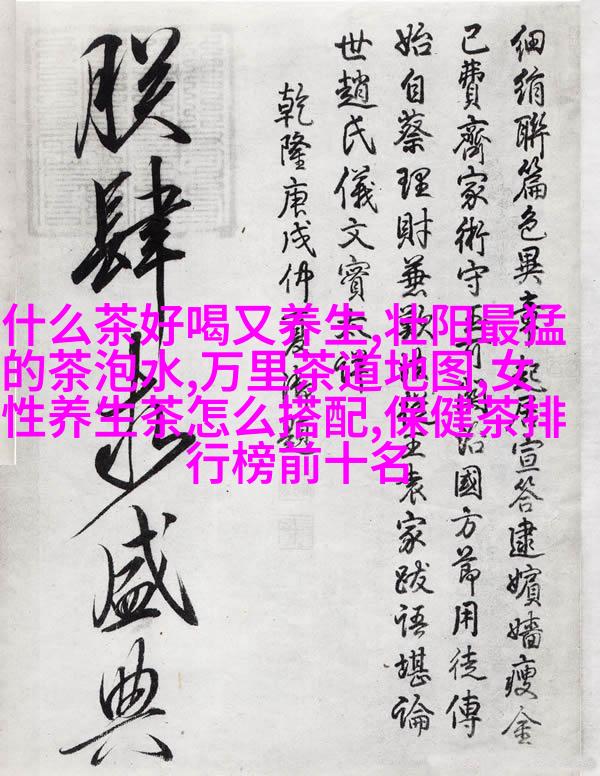 細絹聯篇色異起居宣答逮嬪嬙瘦金
已費齊家術守治國方節用徒傳
始自蔡理財兼歎主袁家跋語堪論
世趙氏儀文實
乾隆庚戌仲夏題
盛典
什么茶好喝又养生,壮阳最猛
的茶泡水,万里茶道地图,女
性养生茶怎么搭配,保健茶排
行榜前十名